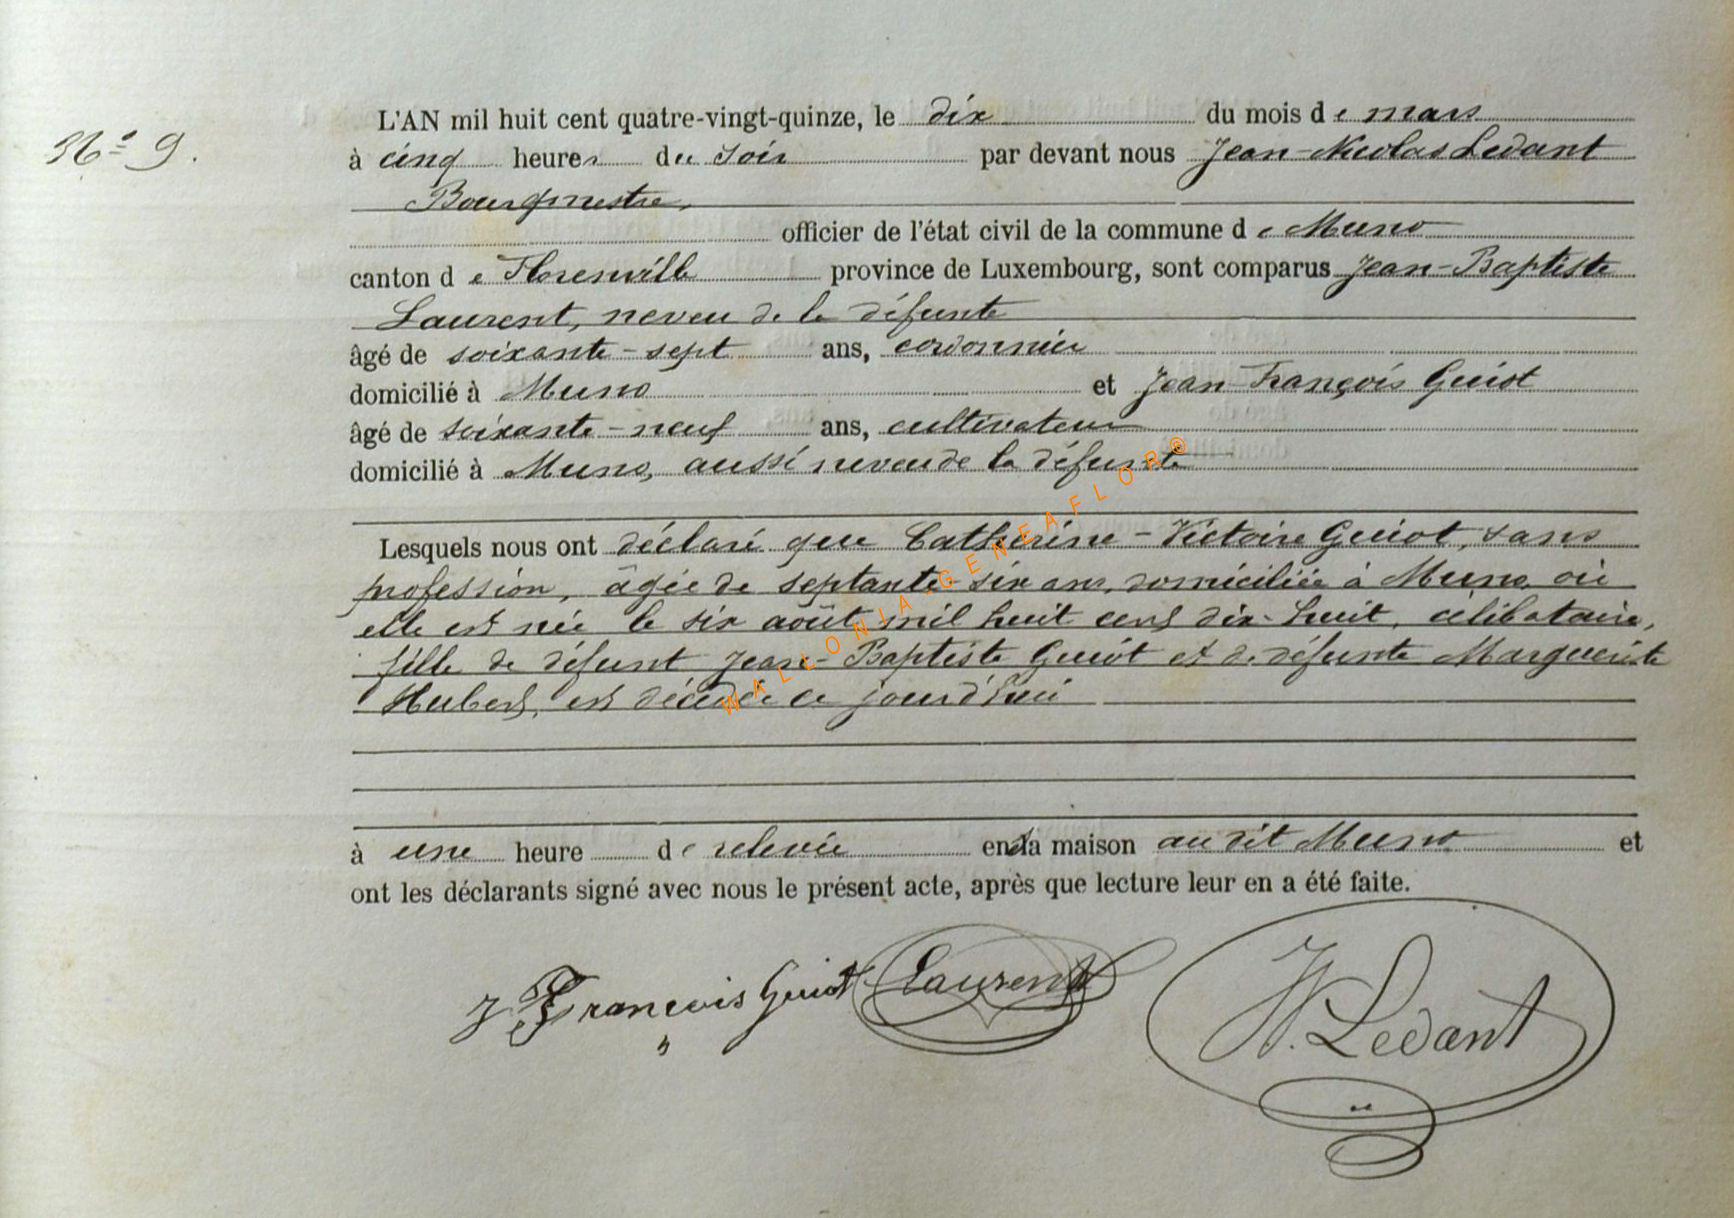 N° 9.
L'AN mil huit cent quatre-vingt-quinze, le dix du mois de mars
à cinq heures du soir par devant nous Jean-Nicolas Ledant
Bourgmestre,
officier de l'état civil de la commune de Muno
canton de Florenville province de Luxembourg, sont comparus Jean-Baptiste
Laurent, neveu de la défunte
âgé de soixante-sept ans, cordonnier
domicilié à Muno et Jean François Guiot
âgé de soixante-neuf ans, cultivateur
domicilié à Muno, aussi neveu de la défunte
Lesquels nous ont déclaré que Catherine-Victoire Guiot, sans
profession, âgée de septante-six ans, domiciliée à Muno où
elle est née le six août mil huit cent dix-huit, célibataire,
fille de défunt Jean-Baptiste Guiot et de défunte Marguerite
Hubert, est décédée ce jourd'hui
à une heure de relevée en la maison au dit Muno et
ont les déclarants signé avec nous le présent acte, après que lecture leur en a été faite.
J François Guiot Laurent N. Ledant
WALLONIA-GENEAFLOR®